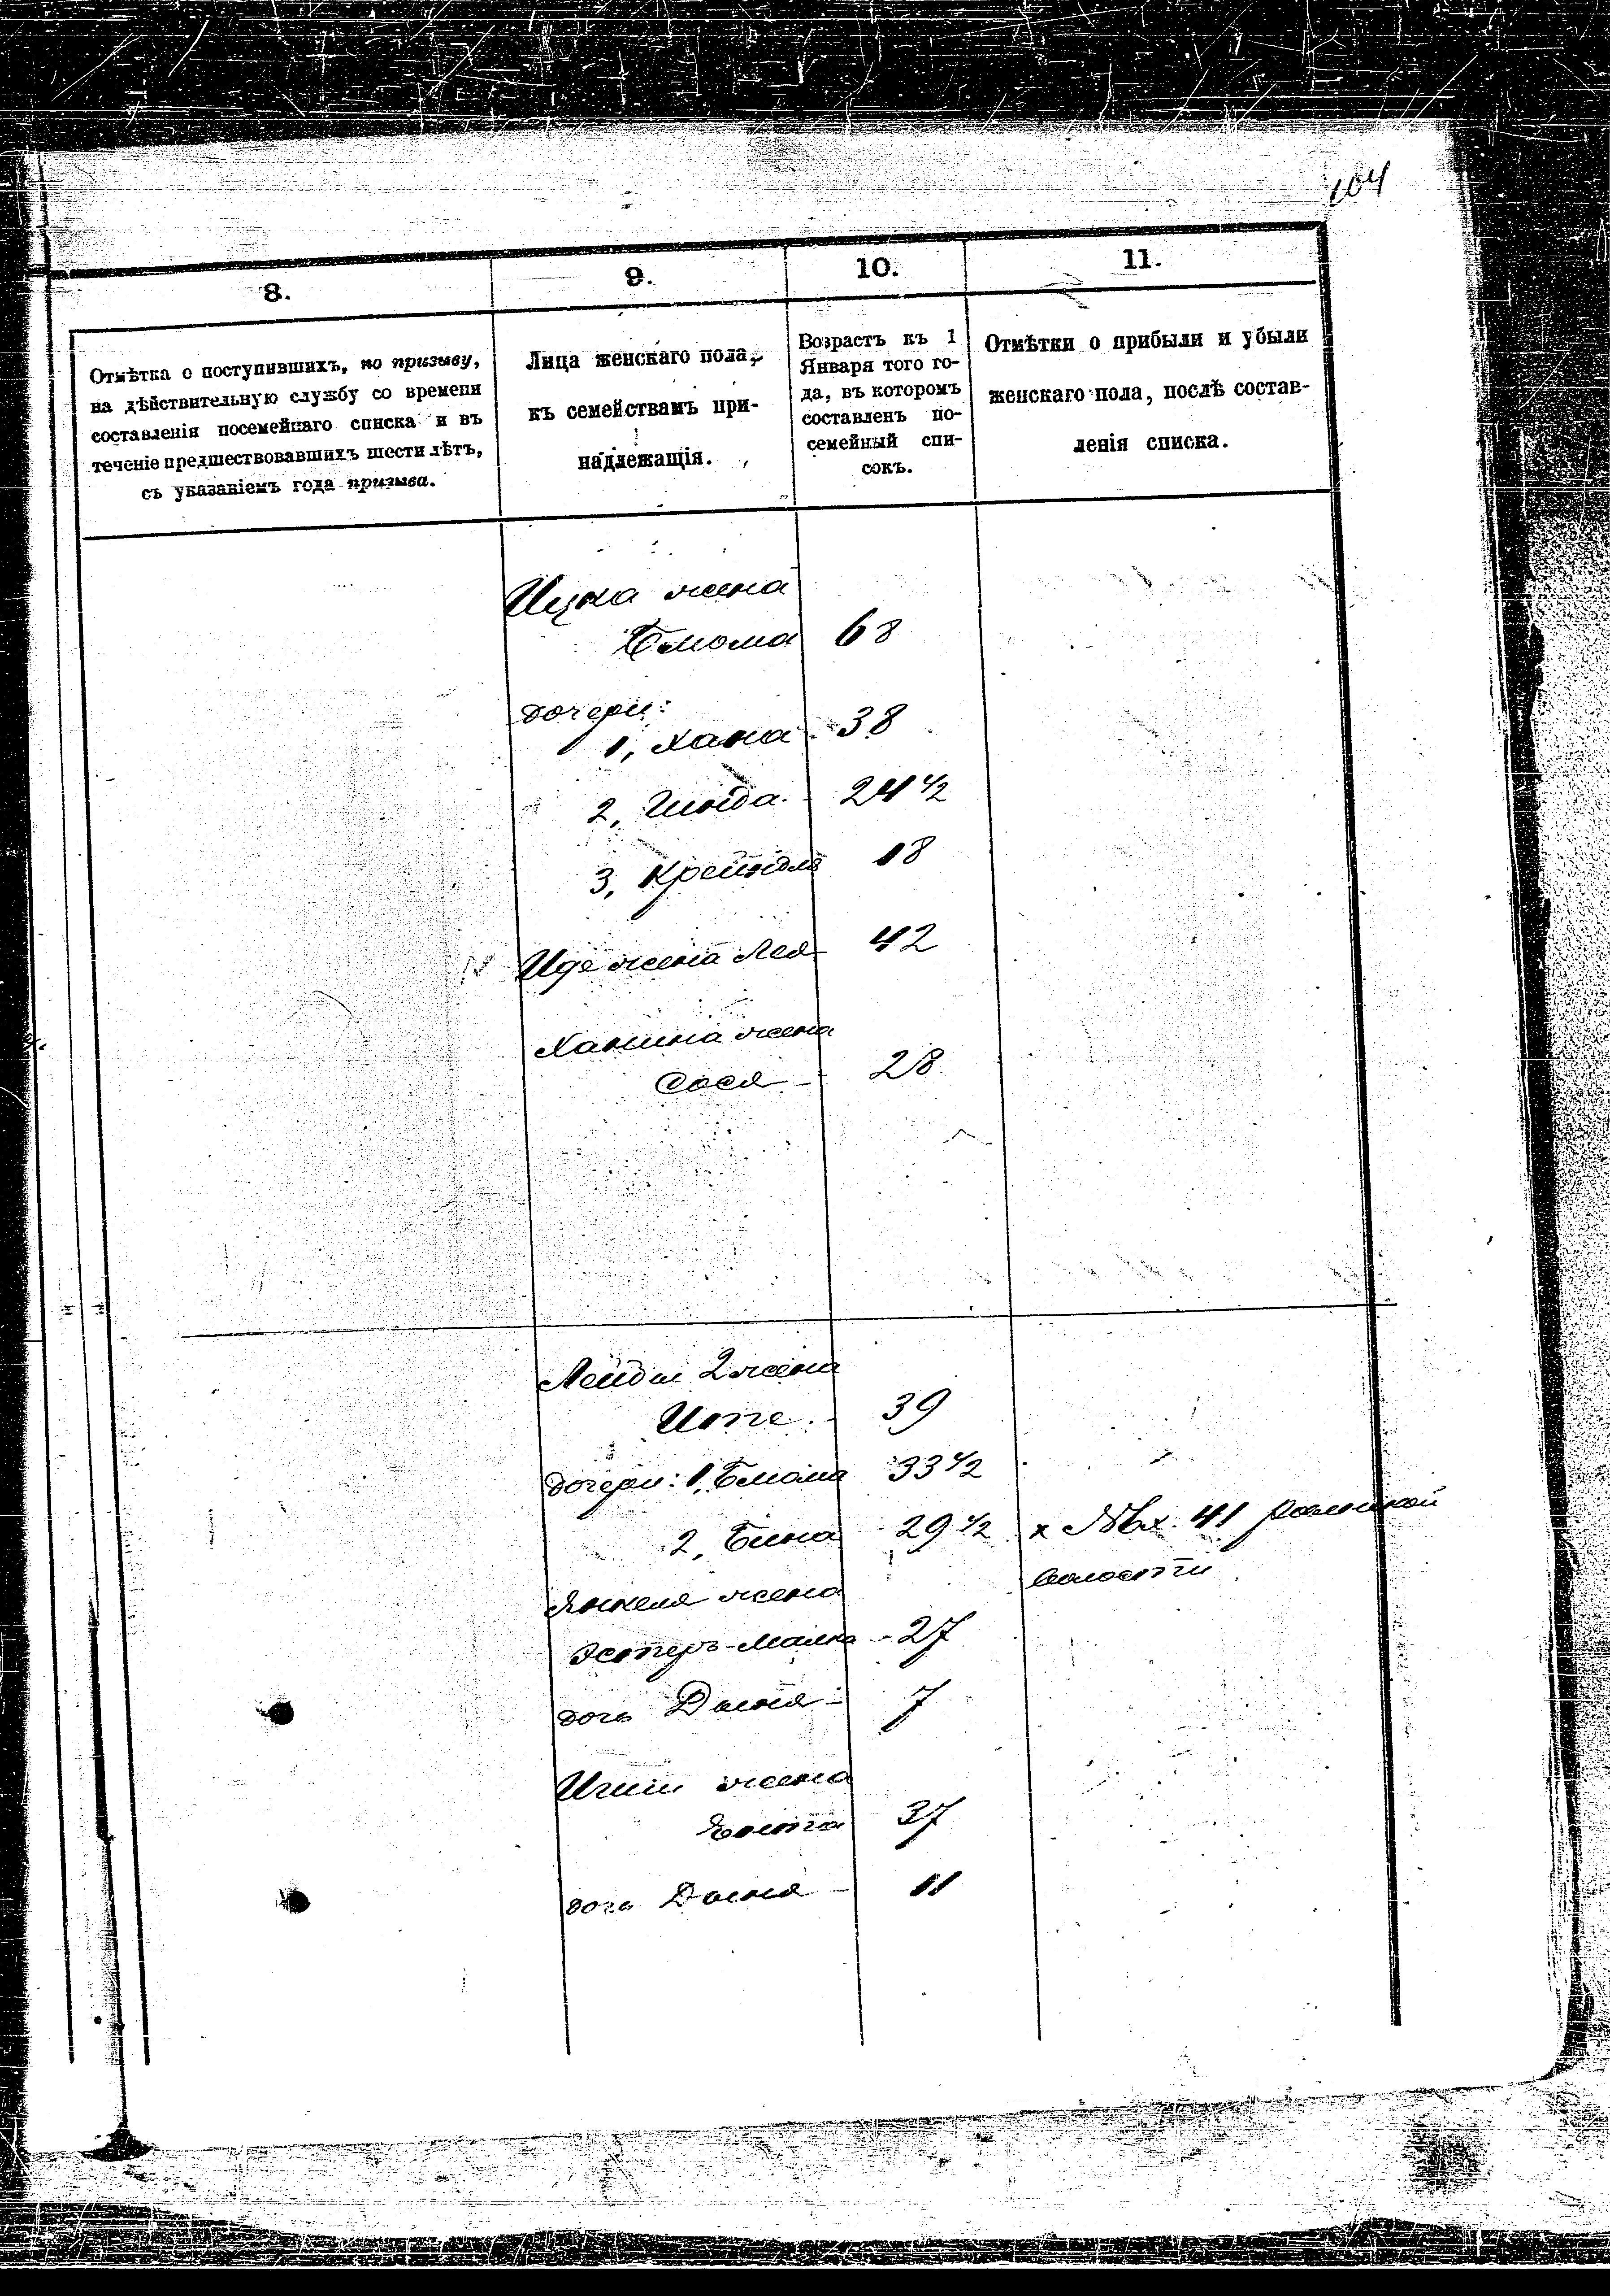 104
8.
9.
10.
11.
Отмѣтка о поступившихъ, по призыву,
на дѣйствительную службу со времени
составленія посемейнаго списка и въ
теченіе предшествовавшихъ шести лѣтъ,
съ указаніемъ года призыва.
Лица женскаго пола,
къ семействамъ при-
надлежащія.
Возрастъ къ 1
Января того го-
да, въ которомъ
составленъ по-
семейный спи-
сокъ.
Отмѣтки о прибыли и убыли
женскаго пола, послѣ состав-
ленія списка.
Ицка жена
Блюма 68
дочери:
1, Хана 38
2, Гинда 24 1/2
3, Крейндля 18
Иде жена Лея 42
Ханина жена
Сося 28
Лейбы 2 жена
Ите 39
дочери: 1, Блюма 33 1/2
2, Бина 29 1/2 х 41
волости
Янкеля жена
Эстеръ-Малка 27
дочь Двеня 7
жена
37
дочь Двеня 11